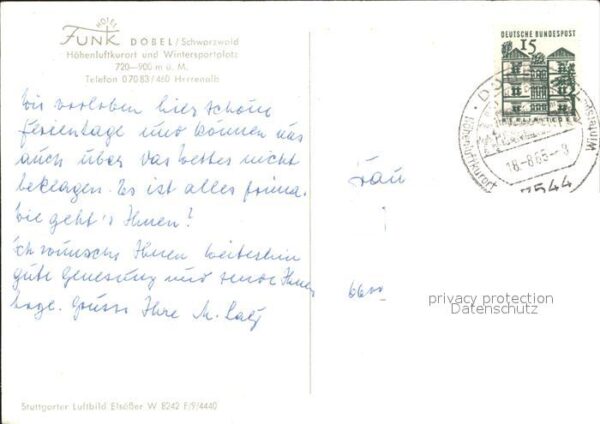 HOTEL
FUNK DOBEL / Schwarzwald
Höhenluftkurort und Wintersportplatz
720—900 m ü. M.
Telefon 07083/460 Herrenalb
Wir verleben hier schöne
Ferientage und können uns
auch über das Wetter nicht
beklagen. Es ist alles prima.
Wie geht's Ihnen?
Ich wünsche Ihnen weiterhin
gute Genesung und Ihnen
Tage. Gruss Ihre M.
Stuttgarter Luftbild Elsäßer W 8242 F/9/4440
DEUTSCHE BUNDESPOST
15
DOBEL
Höhenluftkurort
18.-8.65.-9
7544
Frau
6600
privacy protection
Datenschutz